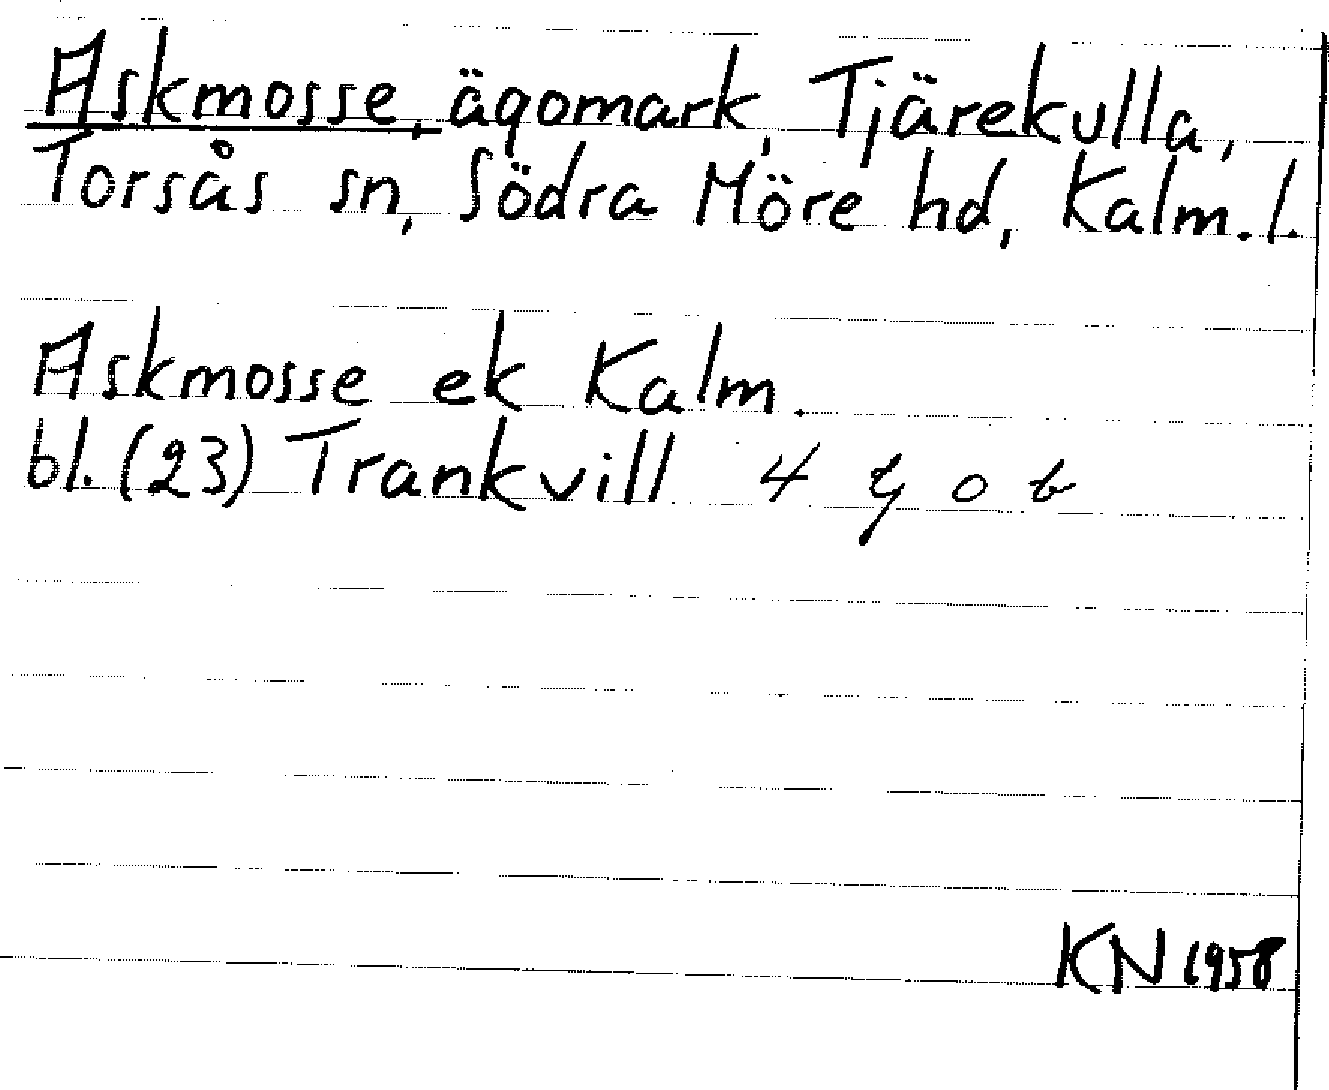 Askmosse, ägomark, Tjärekulla,
Torsås sn, Södra Möre hd, Kalm. l.
Askmosse ek Kalm.
bl. (23) Trankvill 4 g o b
KN 1958